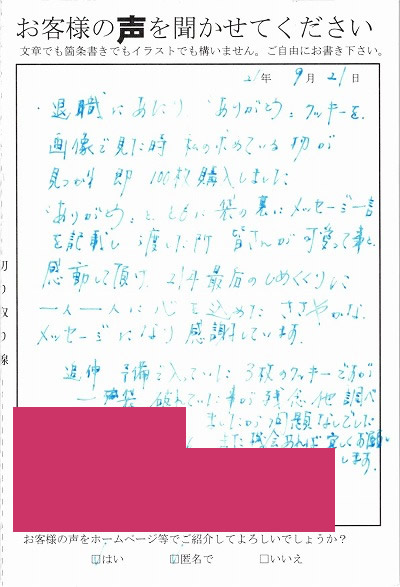 お客様の声を聞かせてください
文章でも箇条書きでもイラストでも構いません。ご自由にお書き下さい。
21年 9月21日
・退職にあたり、「ありがとう」クッキーを、
画像で見た時 私の求めている物が
見つかり 即 100枚購入しました
「ありがとう」と ともに 袋の裏に メッセージ一言
を記載し 渡した所 皆さんが 可愛って事と
感動して頂け 最后のしめくくりに
一人一人に 心を込めた ささやかな
メッセージになり 感謝しています。
追伸 予備で入っていた 3枚のクッキーですが
一袋 破れていた事が残念 他 調べ
ましたが 問題なしでした
また機会あれば 宜しくお願い
します。
切り取り線
お客様の声をホームページ等でご紹介してよろしいでしょうか?
☐はい ☑匿名で ☐いいえ